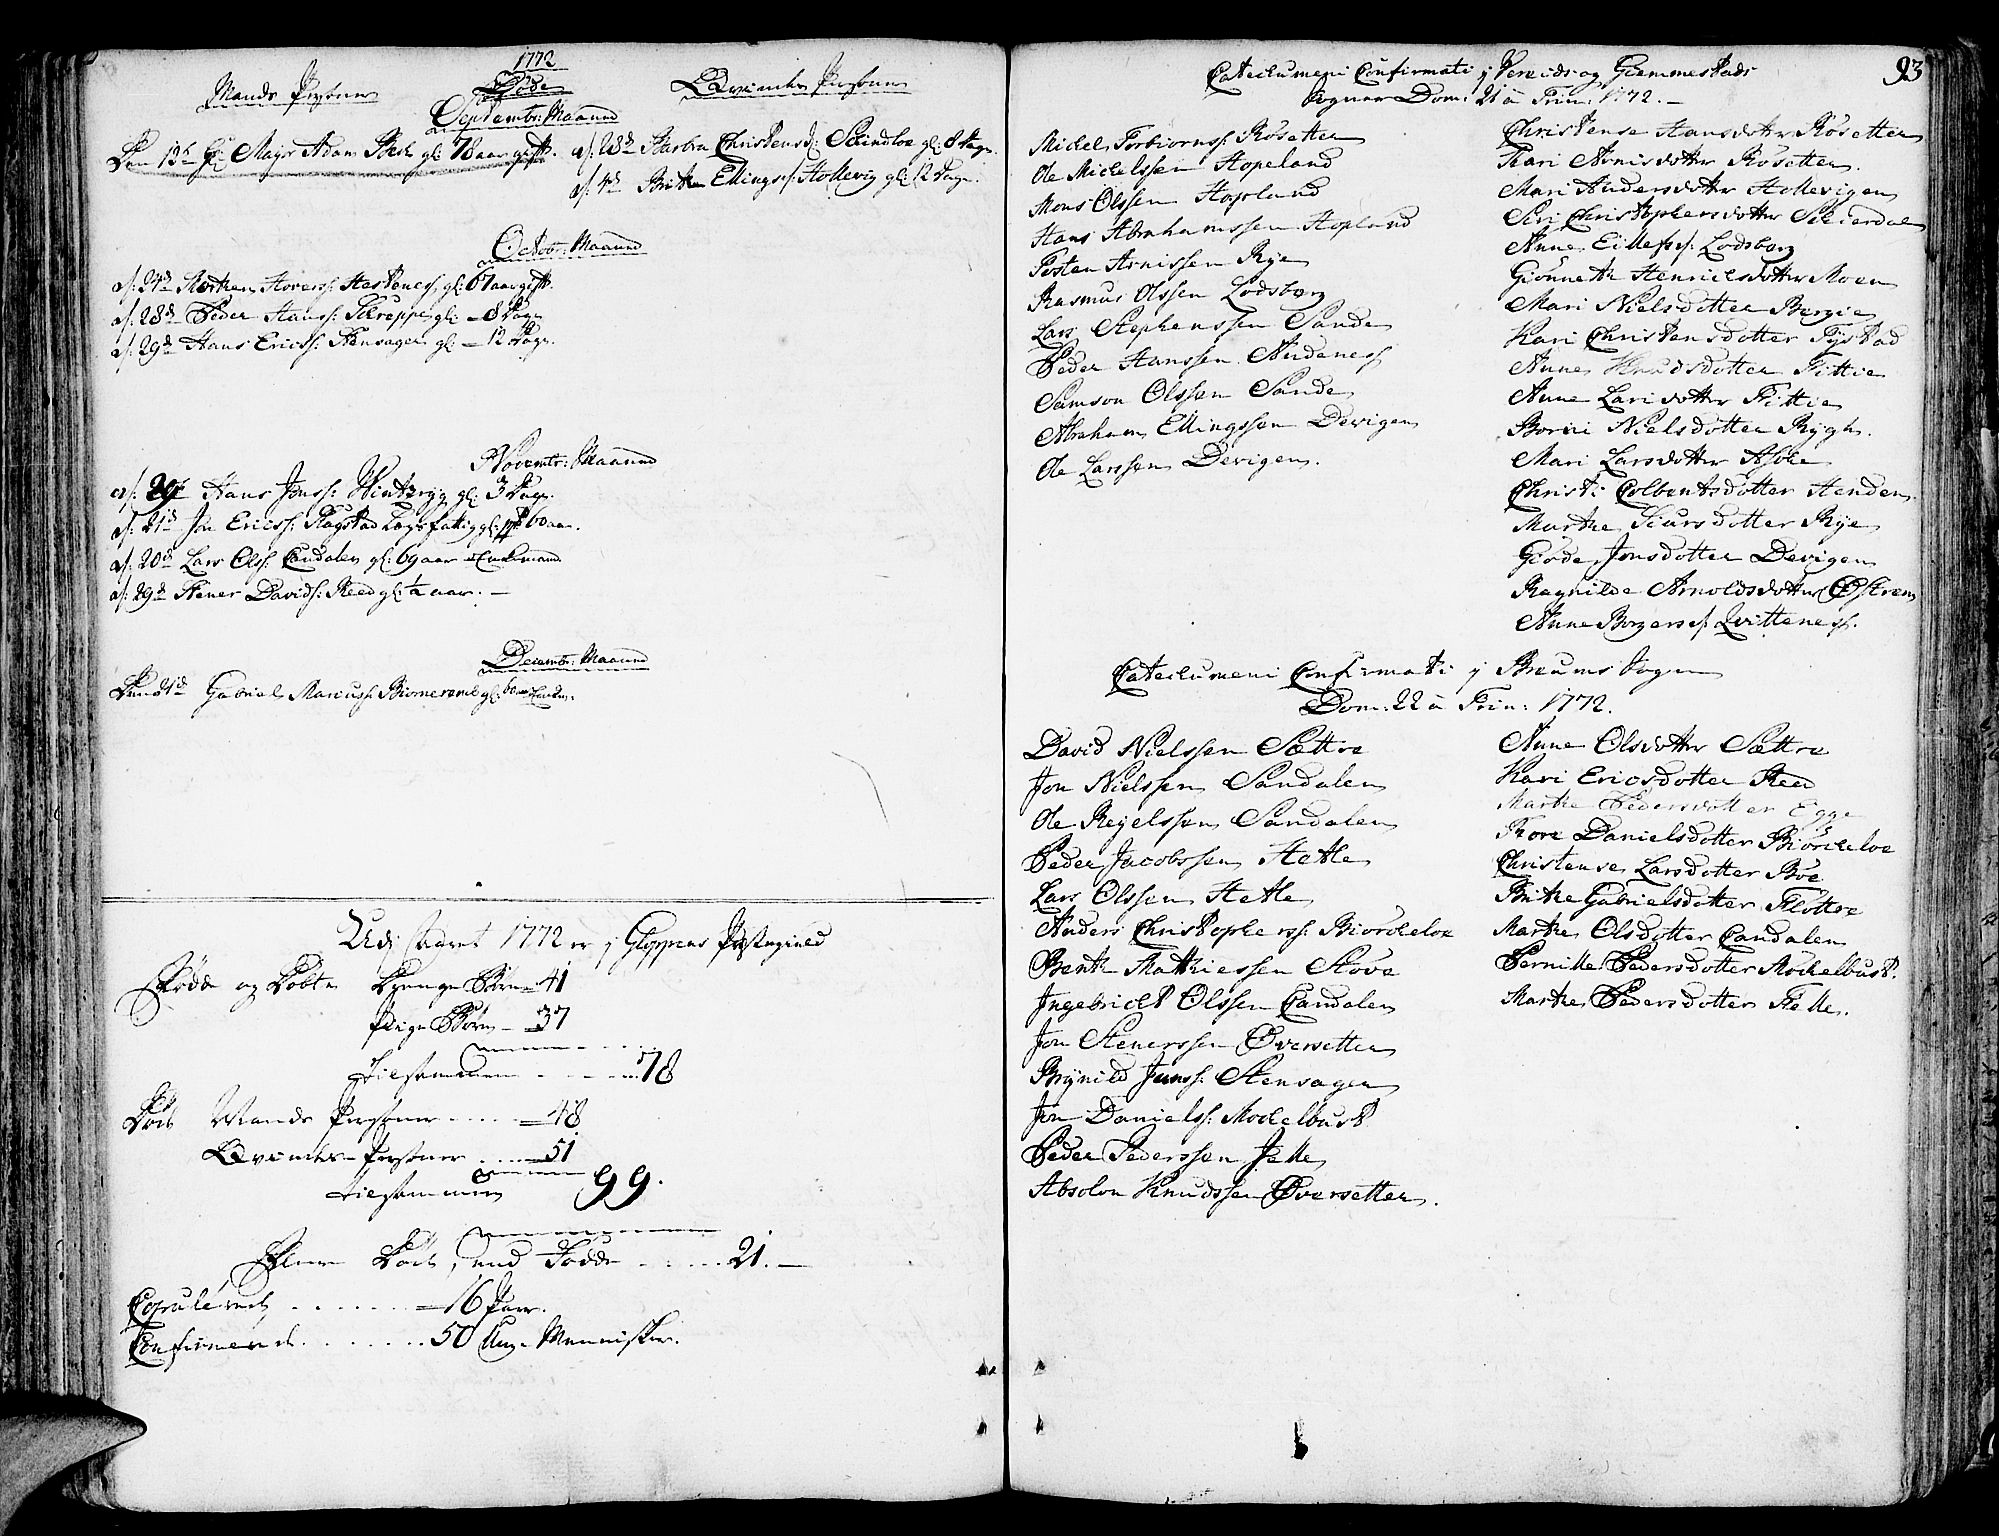 1772
Mands Persone Døde Qvindes Persone
Septembr: Maaned
Den 13de Hr Major Adam gl: 78 aar gift.
d: 28de Barbra Christensd: gl: 8 dage
d: 4de Britha Ellingsd: Hollevig gl: 12 dage.
Octobr: Maaned
d: 24de Morten Hoverss: Hestenes gl: 67 aar gift.
d: 28de Peder Hanss: Skreppe gl: — 8 dage
d: 29de Hans Ericss: Stensager gl: — 12 dage.
Novembr: Maaned
d: 29de Hans Jonss: gl: 3 dage.
d: 21de Jon Ericss: gl: 60 aar.
d: 20de Lars Olss: Candalen gl: 69 aar Enckemand
d: 29de Stener Davids: Reed gl: ½ aar. —
Decembr: Maaned
Den 21de Gabriel Mariuss:
Udj Aaret 1772 er j Gloppens Præstegield
Fødde og Døbte Drenge Børn — 41
Pige Børn — 37
tilsammen 78
Døde Mands Persone 48
Qvindes Persone 51
tilsammen 99.
Flere Døde, end Fødde 21. —
Copulerede 16 Parr.
Confirmerede 50 Unge Mennisker.
93
Catechumeni Confirmati j Vereids og Giemmestads
Sogner Dom: 21 a Trin: 1772. —
Michel Torbiornss: Rosetter
Ole Michelssen Hopeland
Mons Olssen Hopland
Hans Abrahamssen Hopland
Tosten Arnissen Rye
Rasmus Olssen Lodsberg
Lars Stephenssen Sande
Peder Hanssen Andenes
Samson Olssen Sande
Abraham Ellingssen Devigen
Ole Larssen Devigen.
Christense Hansdotter Rosetter
Kari Arnisdotter Rosetter.
Mari Andersdotter Hollevigen
Siri Christophersdotter
Anne Lodsberg
Gionneth Henricsdotter Moen
Mari Nielsdotter Bergie
Kari Christensdotter Tystad
Anne Knudsdotter Fittie
Anne Larsdotter Fittie
Borni Nielsdotter Rygh.
Mari Larsdotter
Christi Colbentsdotter Henden.
Marthe Siursdotter Rye
Giode Jonsdotter Devigen
Ragnilde Arnoldsdotter Østrem
Anne Borgersd: Qvittenes.
Catechumeni Confirmati j Breums Sogn
Dom: 22 a Trin: 1772.
David Nielssen Sættre
Jon Nielssen Sandalen
Ole Reyelssen Sandalen
Peder Jacobssen Hetle
Lars Olssen Hetle
Anders Christopherss: Biorcheloe
Benth Mathiessen Stove
Ingebricht Olssen Candalen
Jon Stenerssen Øversetter
Brynild Jonss: Stensager
Jon Danielss: Mochelbust
Peder Pederssen Felle
Absolon Knudssen Øversetter.
Anne Olsdotter Sættre
Kari Ericsdotter Reed
Marthe Pedersdotter Egge
Thore Danielsdotter Biorcheloe
Christense Larsdotter Boe
Brithe Gabrielsdotter Flottre
Marthe Olsdotter Candalen
Pernille Pedersdotter Mochelbust.
Marthe Pedersdotter Felle.